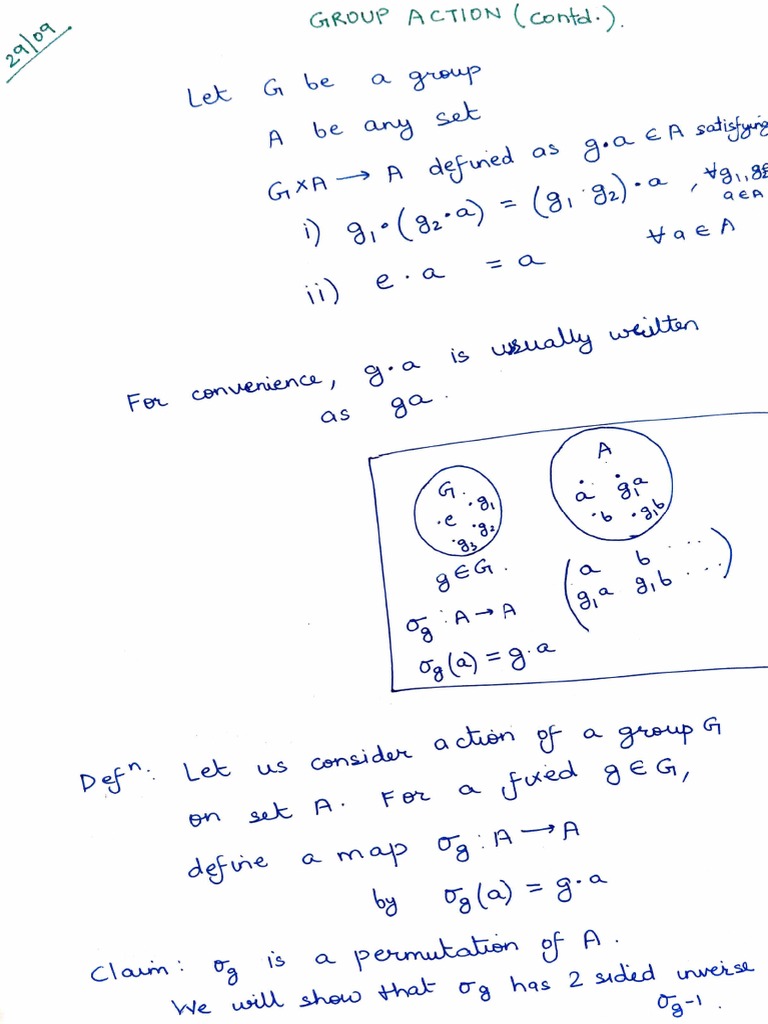 29/09
GROUP ACTION (contd.).
Let G be a group
A be any set
G×A → A defined as g·a ∈ A satisfying
i) g₁·(g₂·a) = (g₁·g₂)·a , ∀g₁,g₂
a∈A
ii) e·a = a ∀ a ∈ A
For convenience, g·a is usually written
as ga.
G A
·e ·g₁ ·g₂ ·g₃
a g₁a
·b ·g₁b
g∈G.
(a b ...
g₁a g₁b ...)
σg : A → A
σg(a) = g·a
Defⁿ: Let us consider action of a group G
on set A. For a fixed g∈G,
define a map σg : A → A
by σg(a) = g·a
Claim: σg is a permutation of A.
We will show that σg has 2 sided inverse
σg-1.